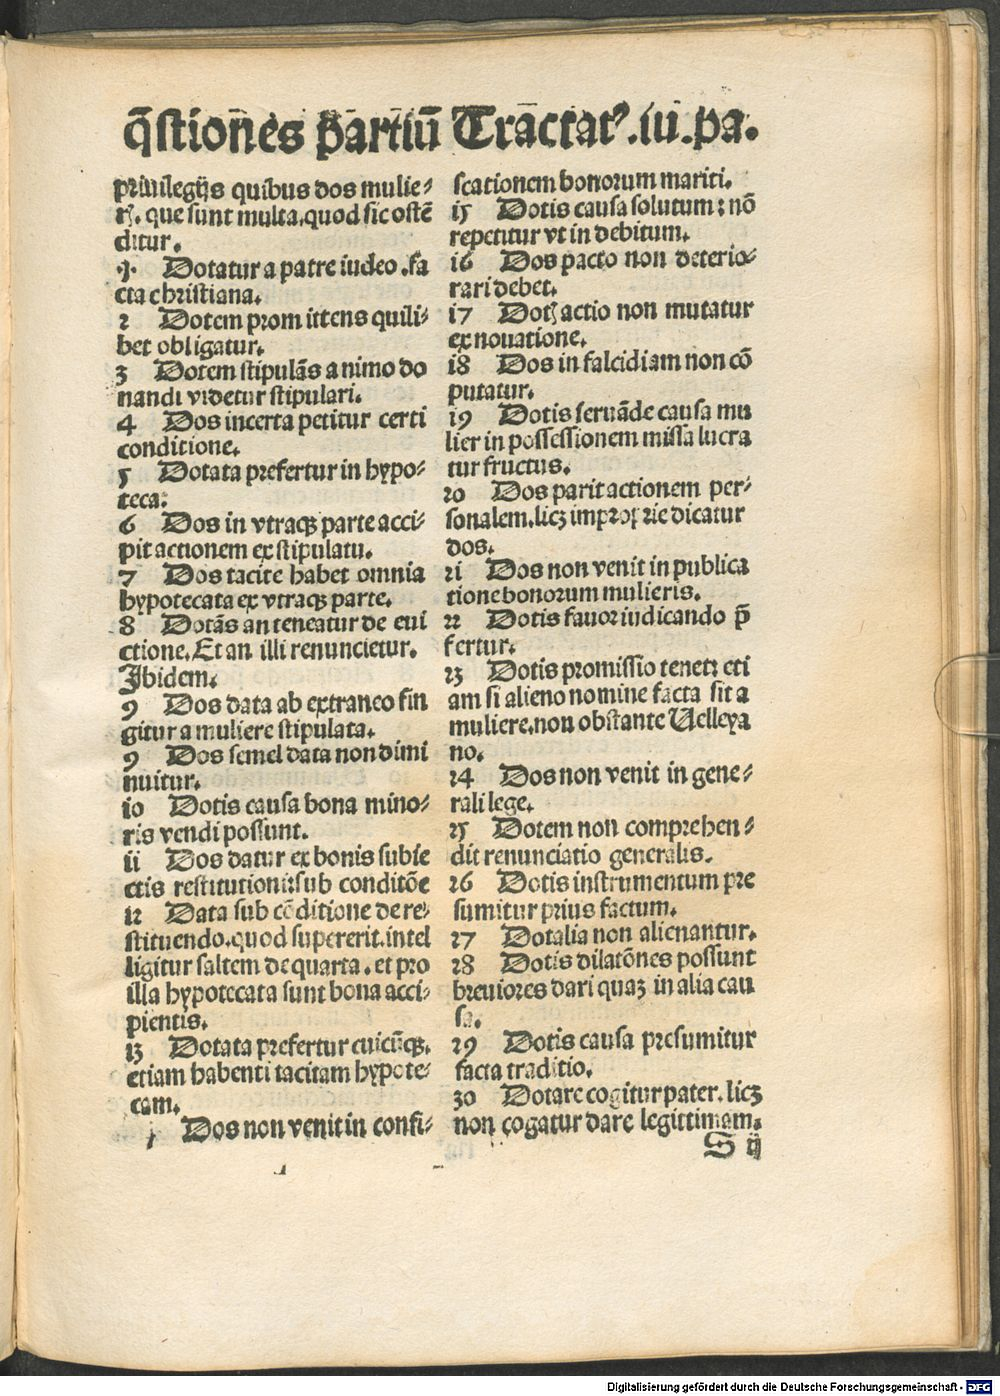 q̄stiones ꝑartiū Tractatꝰ.iii.pa.
priuilegijs quibus dos mulie⸗
rꝝ. que sunt multa.quod sic ostē
ditur.
.1. Dotatur a patre iudeo .fa
cta christiana.
2 Dotem promittens quili⸗
bet obligatur.
3 Dotem stipulās animo do
nandi videtur stipulari.
4 Dos incerta petitur certi
conditione.
5 Dotata prefertur in hypo⸗
teca:
6 Dos in vtraqꝫ parte acci⸗
pit actionem ex stipulatu.
7 Dos tacite habet omnia
hypotecata ex vtraqꝫ parte.
8 Dotās an teneatur de eui
ctione. Et an illi renuncietur.
Ibidem.
9 Dos data ab extraneo fin
gitur a muliere stipulata.
9 Dos semel data non dimi
nuitur.
10 Dotis causa bona mino⸗
ris vendi possunt.
11 Dos datur ex bonis subie
ctis restitutioni:sub conditōe
12 Data sub cōditione de re⸗
stituendo.quod supererit.intel
ligitur saltem de quarta. et pro
illa hypotecata sunt bona acci⸗
pientis.
13 Dotata prefertur cuicūqꝫ.
etiam habenti tacitam hypote⸗
cam.
Dos non venit in confi⸗
scationem bonorum mariti.
15 Dotis causa solutum: nō
repetitur vt in debitum.
16 Dos pacto non deterio⸗
rari debet.
17 Dotꝭ actio non mutatur
ex nouatione.
18 Dos in falcidiam non cō
putatur.
19 Dotis seruāde causa mu
lier in possessionem missa lucra
tur fructus.
20 Dos parit actionem per⸗
sonalem.licꝫ improprie dicatur
dos.
21 Dos non venit in publica
tione bonorum mulieris.
22 Dotis fauor iudicando p̄
fertur.
23 Dotis promissio tenetꝫ eti
am si alieno nomine facta sit a
muliere.non obstante Uelleya
no.
24 Dos non venit in gene⸗
rali lege.
25 Dotem non comprehen⸗
dit renunciatio generalis.
26 Dotis instrumentum pre
sumitur prius factum.
27 Dotalia non alienantur.
28 Dotis dilatōnes possunt
breuiores dari quaꝫ in alia cau
sa.
29 Dotis causa presumitur
facta traditio.
30 Dotare cogitur pater. licꝫ
non cogatur dare legittimam.
S ij
Digitalisierung gefördert durch die Deutsche Forschungsgemeinschaft - DFG